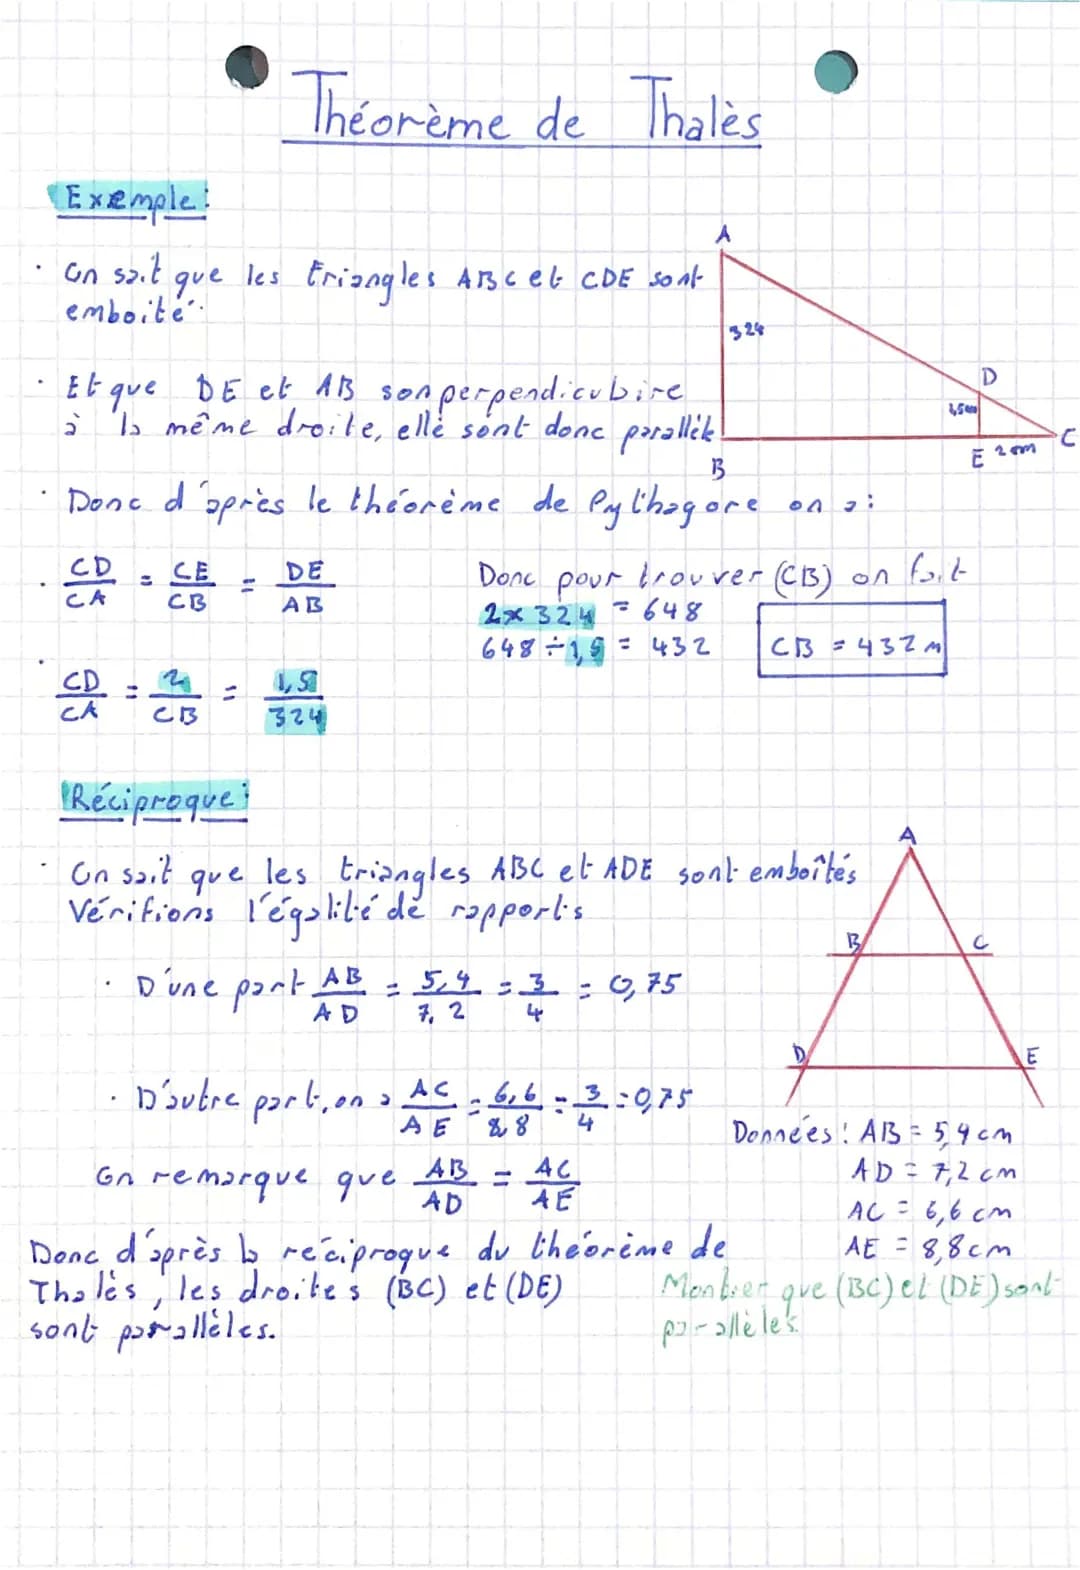 Théorème de Thalès
Exemple:
· On sait que les triangles ABC et CDE sont
emboité.
A
324
D
1,5cm
B
E 2cm
C
· Et que DE et AB son perpendiculaire
à la même droite, elle sont donc parallèle
· Donc d'après le théorème de Pythagore on a:
· CD/CA = CE/CB = DE/AB
· CD/CA = 2/CB = 1,5/324
Donc pour trouver (CB) on fait
2x 324 = 648
648 ÷ 1,5 = 432
CB = 432 m
Réciproque:
· On sait que les triangles ABC et ADE sont emboîtés
Vérifions l'égalité de rapports
· D'une part AB/AD = 5,4/7,2 = 3/4 = 0,75
· D'autre part, on a AC/AE = 6,6/8,8 = 3/4 = 0,75
On remarque que AB/AD = AC/AE
Donc d'après la réciproque du théorème de
Thalès, les droites (BC) et (DE)
sont parallèles.
A
B
C
D
E
Données: AB = 5,4 cm
AD = 7,2 cm
AC = 6,6 cm
AE = 8,8 cm
Montrer que (BC) et (DE) sont
parallèles